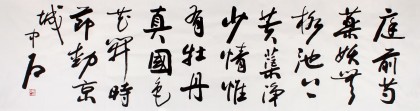 庭前芍
藥妖無
格池上
芙蕖淨
少情惟
有牡丹
真國色
花開時
節動京
城 中石